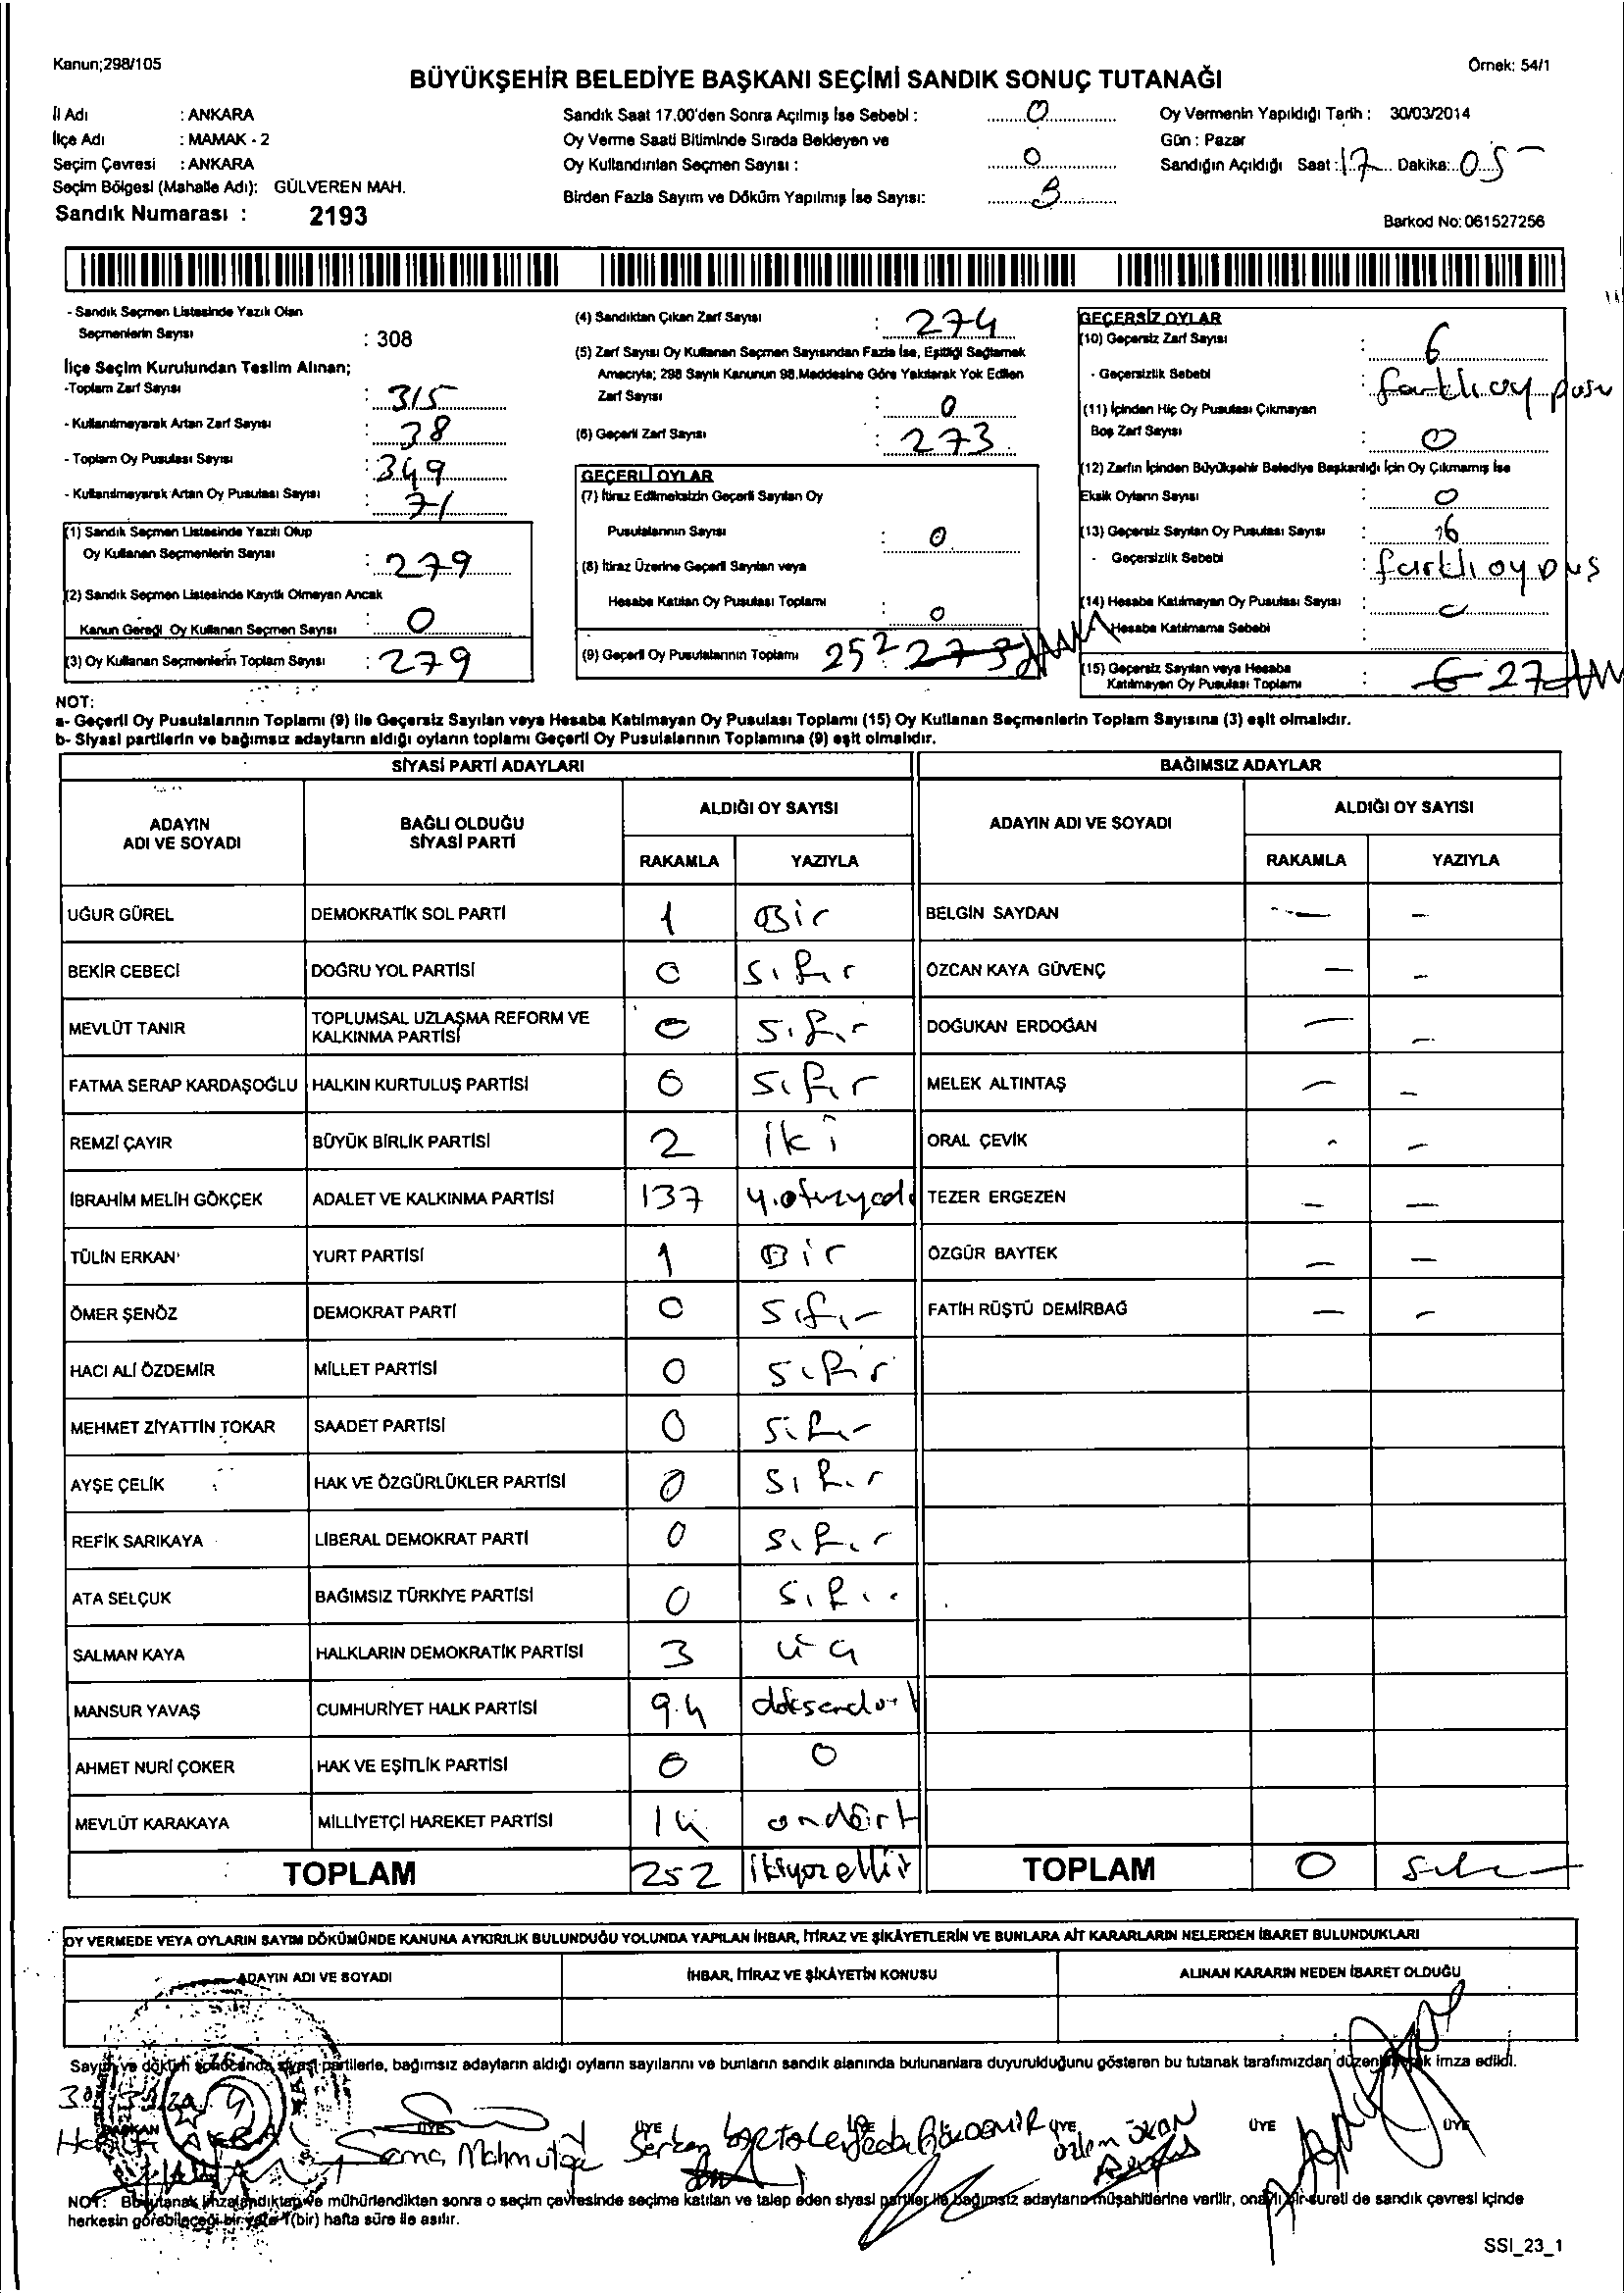 Kanun;298/105
Örnek: 54/1
BÜYÜKŞEHİR BELEDİYE BAŞKANI SEÇİMİ SANDIK SONUÇ TUTANAĞI
İl Adı : ANKARA
İlçe Adı : MAMAK - 2
Seçim Çevresi : ANKARA
Seçim Bölgesi (Mahalle Adı): GÜLVEREN MAH.
Sandık Numarası : 2193
Sandık Saat 17.00'den Sonra Açılmış İse Sebebi : 0
Oy Verme Saati Bitiminde Sırada Bekleyen ve
Oy Kullandırılan Seçmen Sayısı : 0
Birden Fazla Sayım ve Döküm Yapılmış İse Sayısı: 3
Oy Vermenin Yapıldığı Tarih : 30/03/2014
Gün : Pazar
Sandığın Açıldığı Saat : 17 Dakika: 05
Barkod No: 061527256
- Sandık Seçmen Listesinde Yazılı Olan
Seçmenlerin Sayısı : 308
İlçe Seçim Kurulundan Teslim Alınan;
-Toplam Zarf Sayısı : 315
- Kullanılmayarak Artan Zarf Sayısı : 38
- Toplam Oy Pusulası Sayısı : 349
- Kullanılmayarak Artan Oy Pusulası Sayısı : 71
(1) Sandık Seçmen Listesinde Yazılı Olup
Oy Kullanan Seçmenlerin Sayısı : 279
(2) Sandık Seçmen Listesinde Kayıtlı Olmayan Ancak
Kanun Gereği Oy Kullanan Seçmen Sayısı : 0
(3) Oy Kullanan Seçmenlerin Toplam Sayısı : 279
(4) Sandıktan Çıkan Zarf Sayısı : 274
(5) Zarf Sayısı Oy Kullanan Seçmen Sayısından Fazla İse, Eşitliği Sağlamak
Amacıyla; 298 Sayılı Kanunun 98.Maddesine Göre Yakılarak Yok Edilen
Zarf Sayısı : 0
(6) Geçerli Zarf Sayısı : 273
GEÇERLİ OYLAR
(7) İtiraz Edilmeksizin Geçerli Sayılan Oy
Pusulalarının Sayısı : 0
(8) İtiraz Üzerine Geçerli Sayılan veya
Hesaba Katılan Oy Pusulası Toplamı : 0
(9) Geçerli Oy Pusulalarının Toplamı 252 273
GEÇERSİZ OYLAR
(10) Geçersiz Zarf Sayısı : 6
- Geçersizlik Sebebi : farklı oy pusu
(11) İçinden Hiç Oy Pusulası Çıkmayan
Boş Zarf Sayısı : 0
(12) Zarfın İçinden Büyükşehir Belediye Başkanlığı İçin Oy Çıkmamış İse
Eksik Oyların Sayısı : 0
(13) Geçersiz Sayılan Oy Pusulası Sayısı : 16
- Geçersizlik Sebebi : farklı oy pus
(14) Hesaba Katılmayan Oy Pusulası Sayısı : 0
Hesaba Katılmama Sebebi :
(15) Geçersiz Sayılan veya Hesaba
Katılmayan Oy Pusulası Toplamı : 6 27
NOT:
a- Geçerli Oy Pusulalarının Toplamı (9) ile Geçersiz Sayılan veya Hesaba Katılmayan Oy Pusulası Toplamı (15) Oy Kullanan Seçmenlerin Toplam Sayısına (3) eşit olmalıdır.
b- Siyasi partilerin ve bağımsız adayların aldığı oyların toplamı Geçerli Oy Pusulalarının Toplamına (9) eşit olmalıdır.
SİYASİ PARTİ ADAYLARI
BAĞIMSIZ ADAYLAR
ADAYIN ADI VE SOYADI
BAĞLI OLDUĞU SİYASİ PARTİ
ALDIĞI OY SAYISI
RAKAMLA YAZIYLA
ADAYIN ADI VE SOYADI
ALDIĞI OY SAYISI
RAKAMLA YAZIYLA
UĞUR GÜREL DEMOKRATİK SOL PARTİ 1 Bir BELGİN SAYDAN - -
BEKİR CEBECİ DOĞRU YOL PARTİSİ 0 sıfır ÖZCAN KAYA GÜVENÇ - -
MEVLÜT TANIR TOPLUMSAL UZLAŞMA REFORM VE KALKINMA PARTİSİ 0 sıfır DOĞUKAN ERDOĞAN - -
FATMA SERAP KARDAŞOĞLU HALKIN KURTULUŞ PARTİSİ 0 sıfır MELEK ALTINTAŞ - -
REMZİ ÇAYIR BÜYÜK BİRLİK PARTİSİ 2 iki ORAL ÇEVİK - -
İBRAHİM MELİH GÖKÇEK ADALET VE KALKINMA PARTİSİ 137 y.otuzyedi TEZER ERGEZEN - -
TÜLİN ERKAN YURT PARTİSİ 1 Bir ÖZGÜR BAYTEK - -
ÖMER ŞENÖZ DEMOKRAT PARTİ 0 sıfır FATİH RÜŞTÜ DEMİRBAĞ - -
HACI ALİ ÖZDEMİR MİLLET PARTİSİ 0 sıfır
MEHMET ZİYATTİN TOKAR SAADET PARTİSİ 0 sıfır
AYŞE ÇELİK HAK VE ÖZGÜRLÜKLER PARTİSİ 0 sıfır
REFİK SARIKAYA LİBERAL DEMOKRAT PARTİ 0 sıfır
ATA SELÇUK BAĞIMSIZ TÜRKİYE PARTİSİ 0 sıfır
SALMAN KAYA HALKLARIN DEMOKRATİK PARTİSİ 3 üç
MANSUR YAVAŞ CUMHURİYET HALK PARTİSİ 94 doksandört
AHMET NURİ ÇOKER HAK VE EŞİTLİK PARTİSİ 0 0
MEVLÜT KARAKAYA MİLLİYETÇİ HAREKET PARTİSİ 14 ondört
TOPLAM 252 TOPLAM 0 sıfır
OY VERMEDE VEYA OYLARIN SAYIM DÖKÜMÜNDE KANUNA AYKIRILIK BULUNDUĞU YOLUNDA YAPILAN İHBAR, İTİRAZ VE ŞİKÂYETLERİN VE BUNLARA AİT KARARLARIN NELERDEN İBARET BULUNDUKLARI
ADAYIN ADI VE SOYADI İHBAR, İTİRAZ VE ŞİKÂYETİN KONUSU ALINAN KARARIN NEDEN İBARET OLDUĞU
Sayım ve döküm sonucunda siyasi partilerle, bağımsız adayların aldığı oyların sayılarını ve bunların sandık alanında bulunanlara duyurulduğunu gösteren bu tutanak tarafımızdan düzenlenerek imza edildi.
BAŞKAN ÜYE ÜYE ÜYE ÜYE ÜYE ÜYE
Sema Serkan özlem
NOT: Bu tutanak imzalandıktan ve mühürlendikten sonra o seçim çevresinde seçime katılan ve talep eden siyasi partiler ile bağımsız adayların müşahitlerine verilir, onaylı bir sureti de sandık çevresi içinde
herkesin görebileceği bir yere 1(bir) hafta süre ile asılır.
SSI_23_1